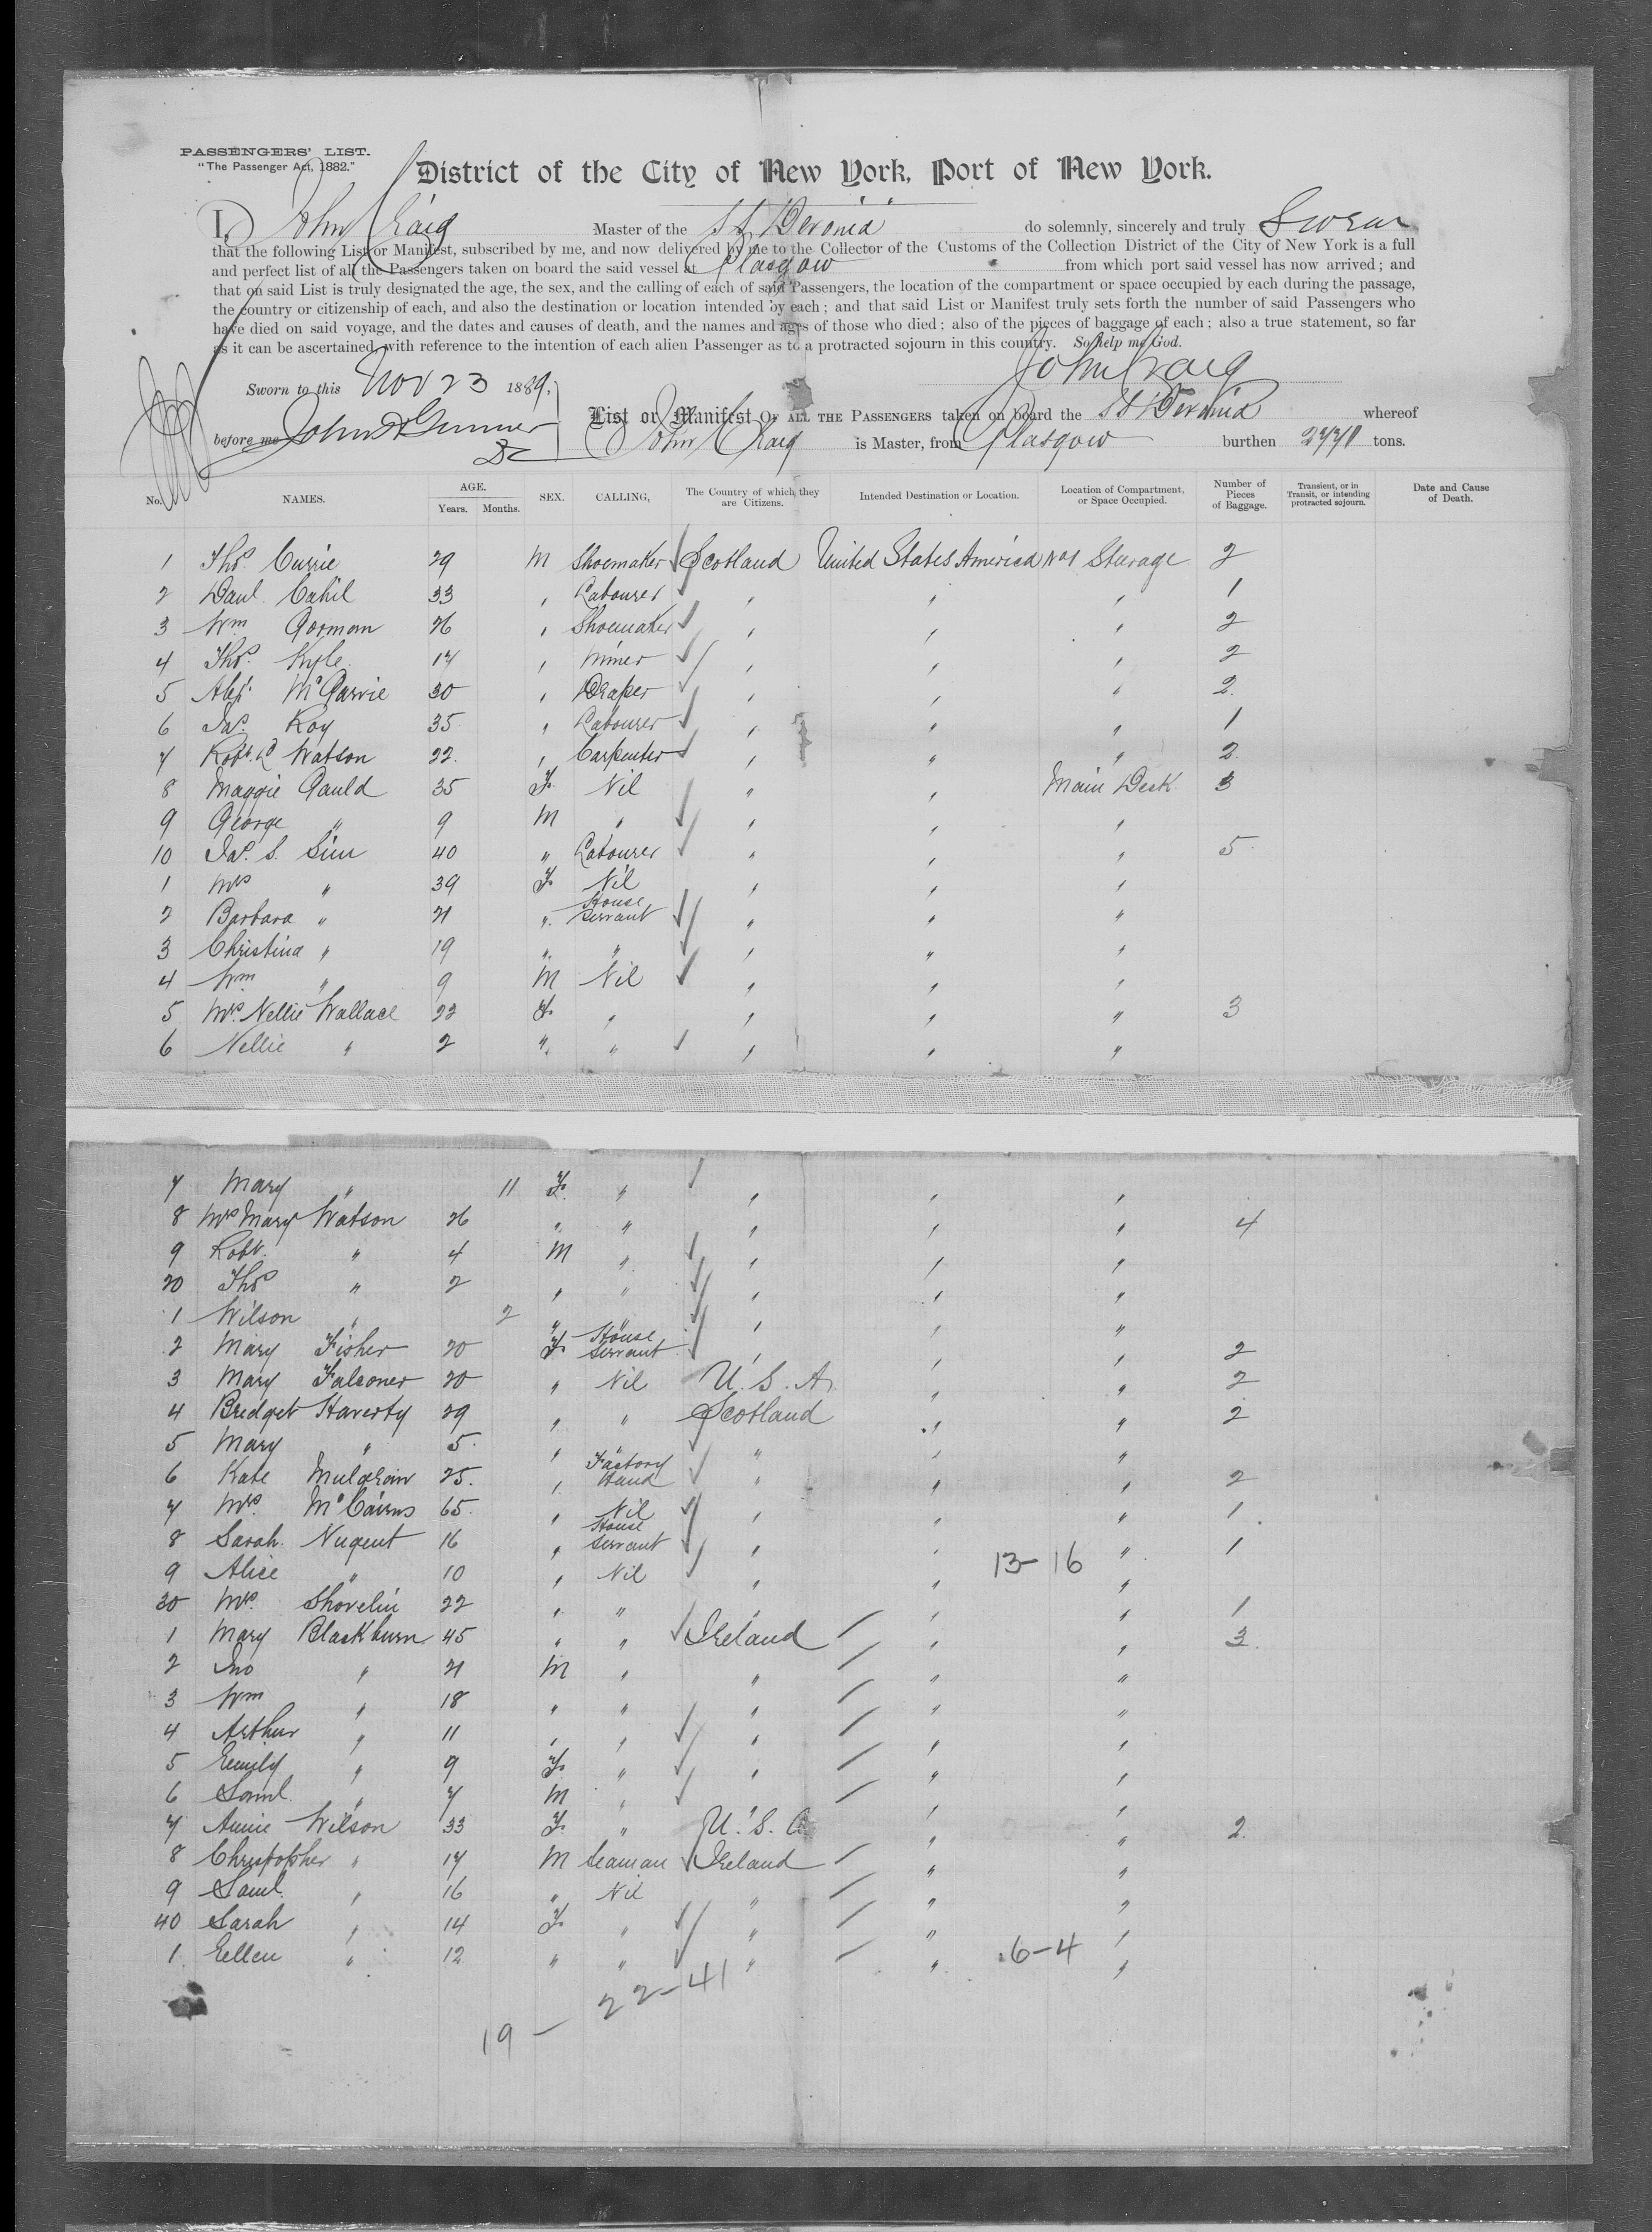 PASSENGERS' LIST.
"The Passenger Act, 1882."
District of the City of New York, Port of New York.
I, John Craig Master of the SS Devonia do solemnly, sincerely and truly Swear
that the following List or Manifest, subscribed by me, and now delivered by me to the Collector of the Customs of the Collection District of the City of New York is a full
and perfect list of all the Passengers taken on board the said vessel at Glasgow from which port said vessel has now arrived; and
that on said List is truly designated the age, the sex, and the calling of each of said Passengers, the location of the compartment or space occupied by each during the passage,
the country or citizenship of each, and also the destination or location intended by each; and that said List or Manifest truly sets forth the number of said Passengers who
have died on said voyage, and the dates and causes of death, and the names and ages of those who died; also of the pieces of baggage of each; also a true statement, so far
as it can be ascertained, with reference to the intention of each alien Passenger as to a protracted sojourn in this country. So help me God.
John Craig
Sworn to this Nov 23 1889,
List or Manifest OF ALL THE PASSENGERS taken on board the SS Devonia whereof
before me John A Gunner
John Craig is Master, from Glasgow burthen 2771 tons.
No. NAMES. AGE. Years. Months. SEX. CALLING, The Country of which they are Citizens. Intended Destination or Location. Location of Compartment, or Space Occupied. Number of Pieces of Baggage. Transient, or in Transit, or intending protracted sojourn. Date and Cause of Death.
1 Thos Currie 29 M Shoemaker Scotland United States America No 1 Stearage 2
2 Danl. Cahil 33 , Labourer , , , 1
3 Wm Gorman 26 , Shoemaker , , , 2
4 Thos. Kyle 17 , Miner , , , 2
5 Alexr. McGarvie 30 , Draper , , " 2
6 Jas Roy 35 , Labourer , " " 1
7 Robt. D Watson 22 , Carpenter , " " 2
8 Maggie Gauld 35 F. Nil " , Main Deck 3
9 George " 9 M " , , ,
10 Jas. S. Sim 40 " Labourer " , , 5
1 Mrs " 39 F. Nil , , ,
2 Barbara " 21 " House Servant " , "
3 Christina " 19 " " , " ,
4 Wm " 9 M Nil , , ,
5 Mrs. Nellie Wallace 22 F. , , , " 3
6 Nellie " 2 " " , , "
7 Mary " 11 F. " , , ,
8 Mrs Mary Watson 26 " " , , , 4
9 Robt. " 4 M " , , ,
20 Thos " 2 , " , , ,
1 Wilson " 2 " " , , "
2 Mary Fisher 20 F. House Servant , , , 2
3 Mary Falconer 20 , Nil U.S.A. , " 2
4 Bridget Haverty 29 , " Scotland , " 2
5 Mary " 5 , " " , "
6 Kate 25 , Factory Hand " , , 2
7 Mrs. McCairns 65 , Nil , , " 1
8 Sarah Nugent 16 , House Servant , , " 1
13-16
9 Alice " 10 , Nil , , ,
30 Mrs. Shovelin 22 , " , , , 1
1 Mary Blackburn 45 " " Ireland , , 3
2 Jno " 21 M , " " "
3 Wm " 18 " " , , "
4 Arthur " 11 , , , , ,
5 Emily " 9 F. " , " ,
6 Saml. " 7 M , , , ,
7 Annie Wilson 33 F. " U.S.A. , " 2
8 Christopher " 17 M Seaman Ireland " "
9 Saml. , 16 " Nil " " "
40 Sarah , 14 F. " " " ,
1 Eellen " 12 " " " " ,
6-4
22-41
19 -